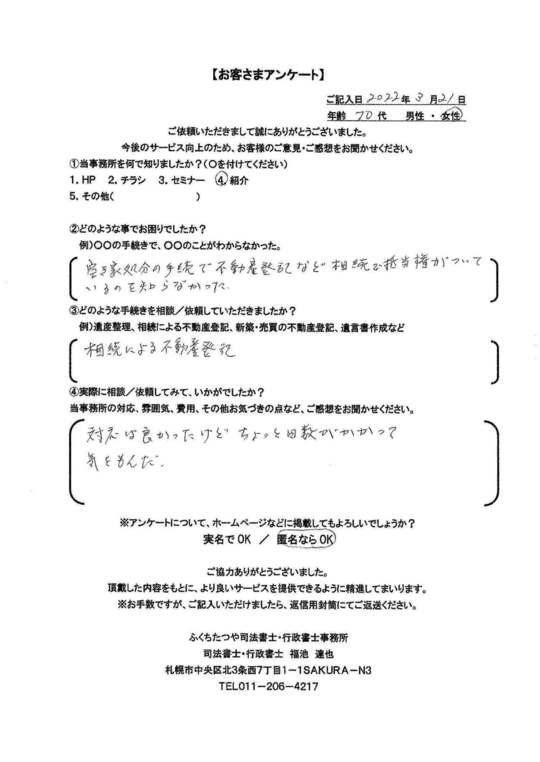 【お客さまアンケート】
ご記入日 2022年 3 月21日
年齢 70代 男性 ・ 女性
ご依頼いただきまして誠にありがとうございました。
今後のサービス向上のため、お客様のご意見・ご感想をお聞かせください。
①当事務所を何で知りましたか?(〇を付けてください)
1. HP 2. チラシ 3. セミナー ④紹介
5. その他( )
②どのような事でお困りでしたか?
例)〇〇の手続きで、〇〇のことがわからなかった。
空き家処分の手続で不動産登記など 相続や抵当権がついて
いるのを知らなかった
③どのような手続きを相談/依頼していただきましたか?
例)遺産整理、相続による不動産登記、新築・売買の不動産登記、遺言書作成など
相続による不動産登記
④実際に相談/依頼してみて、いかがでしたか?
当事務所の対応、雰囲気、費用、その他お気づきの点など、ご感想をお聞かせください。
対応は良かったけど ちょっと日数がかかって
気をもんだ.
※アンケートについて、ホームページなどに掲載してもよろしいでしょうか?
実名でOK / 匿名ならOK
ご協力ありがとうございました。
頂戴した内容をもとに、より良いサービスを提供できるように精進してまいります。
※お手数ですが、ご記入いただけましたら、返信用封筒にてご返送ください。
ふくちたつや司法書士・行政書士事務所
司法書士・行政書士 福池 達也
札幌市中央区北3条西7丁目1-1SAKURA-N3
TEL011-206-4217